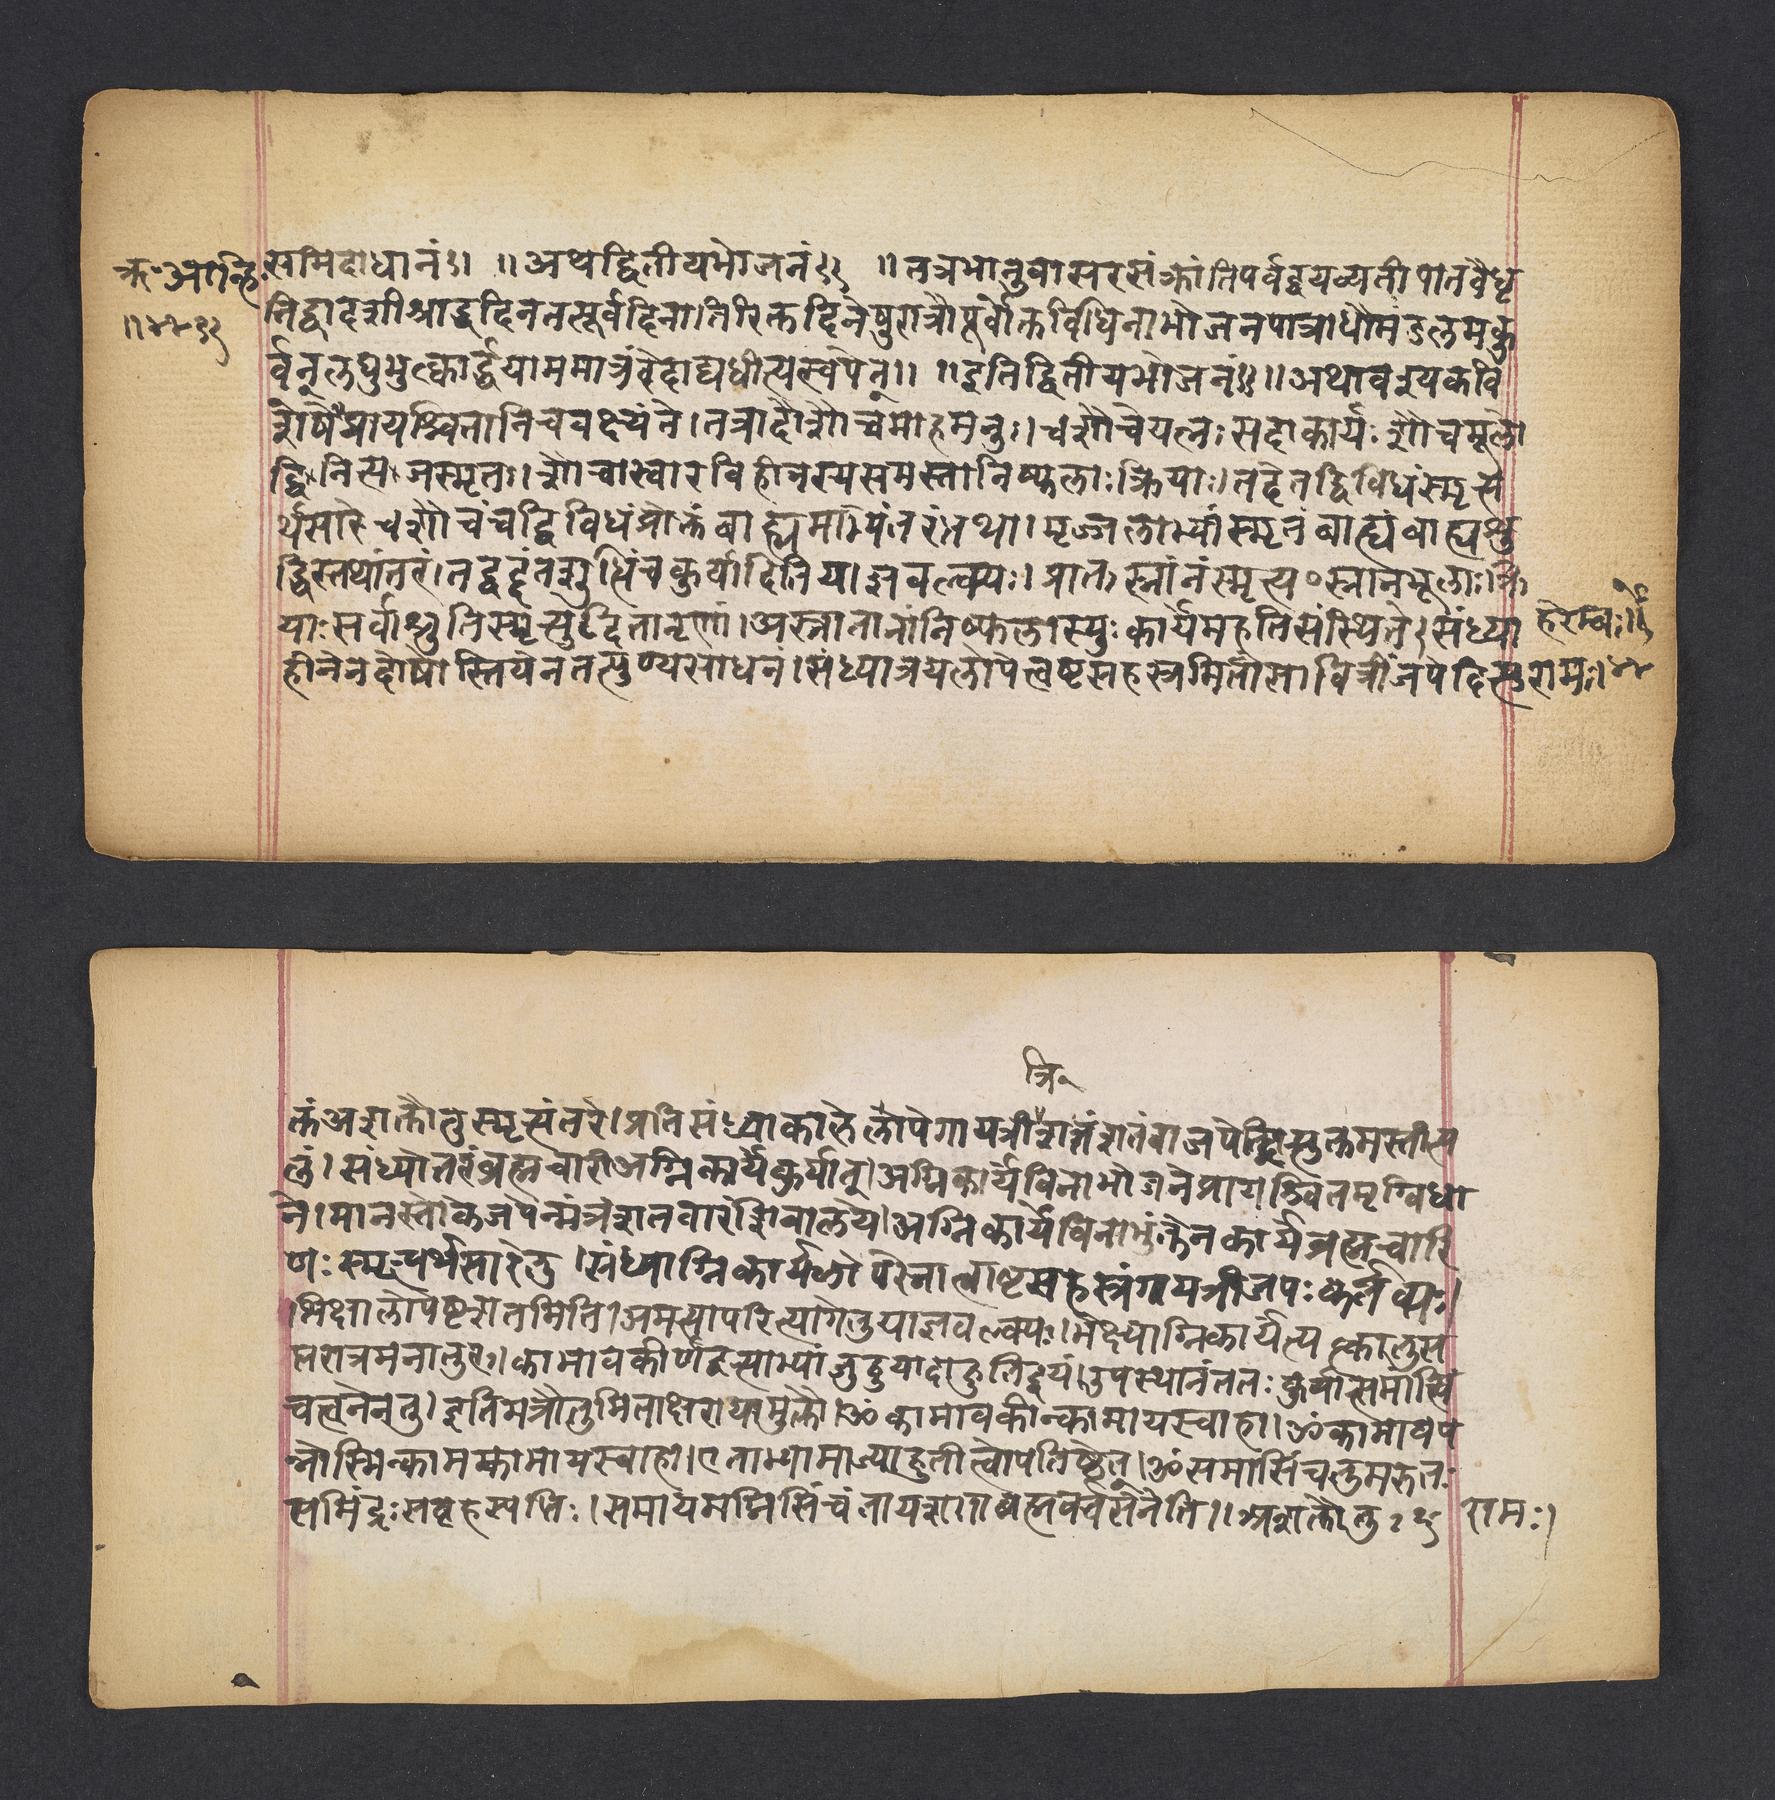 ऋ॰आन्हि
॥४४॥
समिदाधानं॥ ॥अथद्वितीयभोजनं॥ ॥तत्रभानुवासरसंक्रांतिपर्वद्वयव्यतीपातवैधृ
तिद्वादशीश्राद्धदिनतत्पूर्वदिना।तिरिक्तदिनेषुरात्रौपूर्वोक्तविधिनाभोजनपात्राधोमंडलमकु
र्वन्लघुभुक्त्वोर्द्ध्वयाममात्रंवेदाद्यधीत्यस्वपेत्॥ ॥इतिद्वितीयभोजनं॥ ॥अथावश्यकवि
शेषैःप्रायश्चित्तानिचवक्ष्यंते।तत्रादौशौचमाहमनुः।चशौचेयत्नःसदाकार्यःशौचमूलो
द्विजस्मृतः।शौचाचारविहीनस्यसमस्तानिष्फलाःक्रियाः।तदेतद्विविधंस्मृत्य
र्थसारेचशौचंचद्विविधंप्रोक्तंबाह्यमाभ्यंतरंतथा।मृज्जलाभ्यांस्मृतंबाह्यंबाह्यशु
द्धिस्तथांतरं।तद्वद्दंतशुद्धिंचकुर्यादितिय।ज्ञवल्क्यः।प्रातःस्नानंस्मृत्य॰स्नानमूलाःक्रि
याःसर्वाश्श्रुतिस्मृत्युदितानृणां।अस्नातानांनिष्फलास्युःकार्यमहतिसंस्थिते।संध्या
हीनेनदोषोस्तियेनतत्पुण्यसाधनं।संध्यात्रयलोपेत्वष्टसहस्त्रमितांसावित्रींजपेदित्यु
हेरम्बः॥
रामः।४४
त्रि॰
क्तंअशक्तौतुस्मृत्यंतरे।प्रतिसंध्याकालेलोपेगायत्रींशतंशतंवाजपेदित्युक्तमस्तीत्य
लं।संध्योत्तरंब्रह्मचारीअग्निकार्यंकुर्यात्।अग्निकार्यंविनाभोजनेप्रायश्चित्तमृग्विधा
ने।मानस्तोकेजपेन्मंत्रंशतवारंशिवालये।अग्निकार्यंविनाभुंक्तेनकार्यंब्रह्मचारि
णःस्मृत्यर्थसारेतु।संध्याग्निकार्यलोपेस्नात्वाष्टसहस्त्रंगायत्रीजपःकर्तव्यः।
भिक्षालोपेष्टशतमिति।अमत्यापरित्यागेतुयाज्ञवल्क्यः।भैक्ष्याग्निकार्येत्यक्त्वातुस
प्तरात्रमनातुरः।कामावकीर्णइत्याभ्यांजुहुयादाहुतिद्वयं।उपस्थानंततःकुर्यात्समासिं
चत्वनेनतु।इतिमंत्रौतुमिताक्षरायामुक्तौ।ॐकामावकीर्न्कामायस्वाहा।ॐकामावप
न्नोस्मिन्कामकामायस्वाहा।एताभ्यामाज्याहुतीत्वोपतिष्ठेत्।ॐसमासिंचतुमरुतः
समिंद्रःसबृहस्पतिः।समायमग्निसिंचंतायशसाब्रह्मवर्चसेनेति॥अशक्तौतु
रामः।